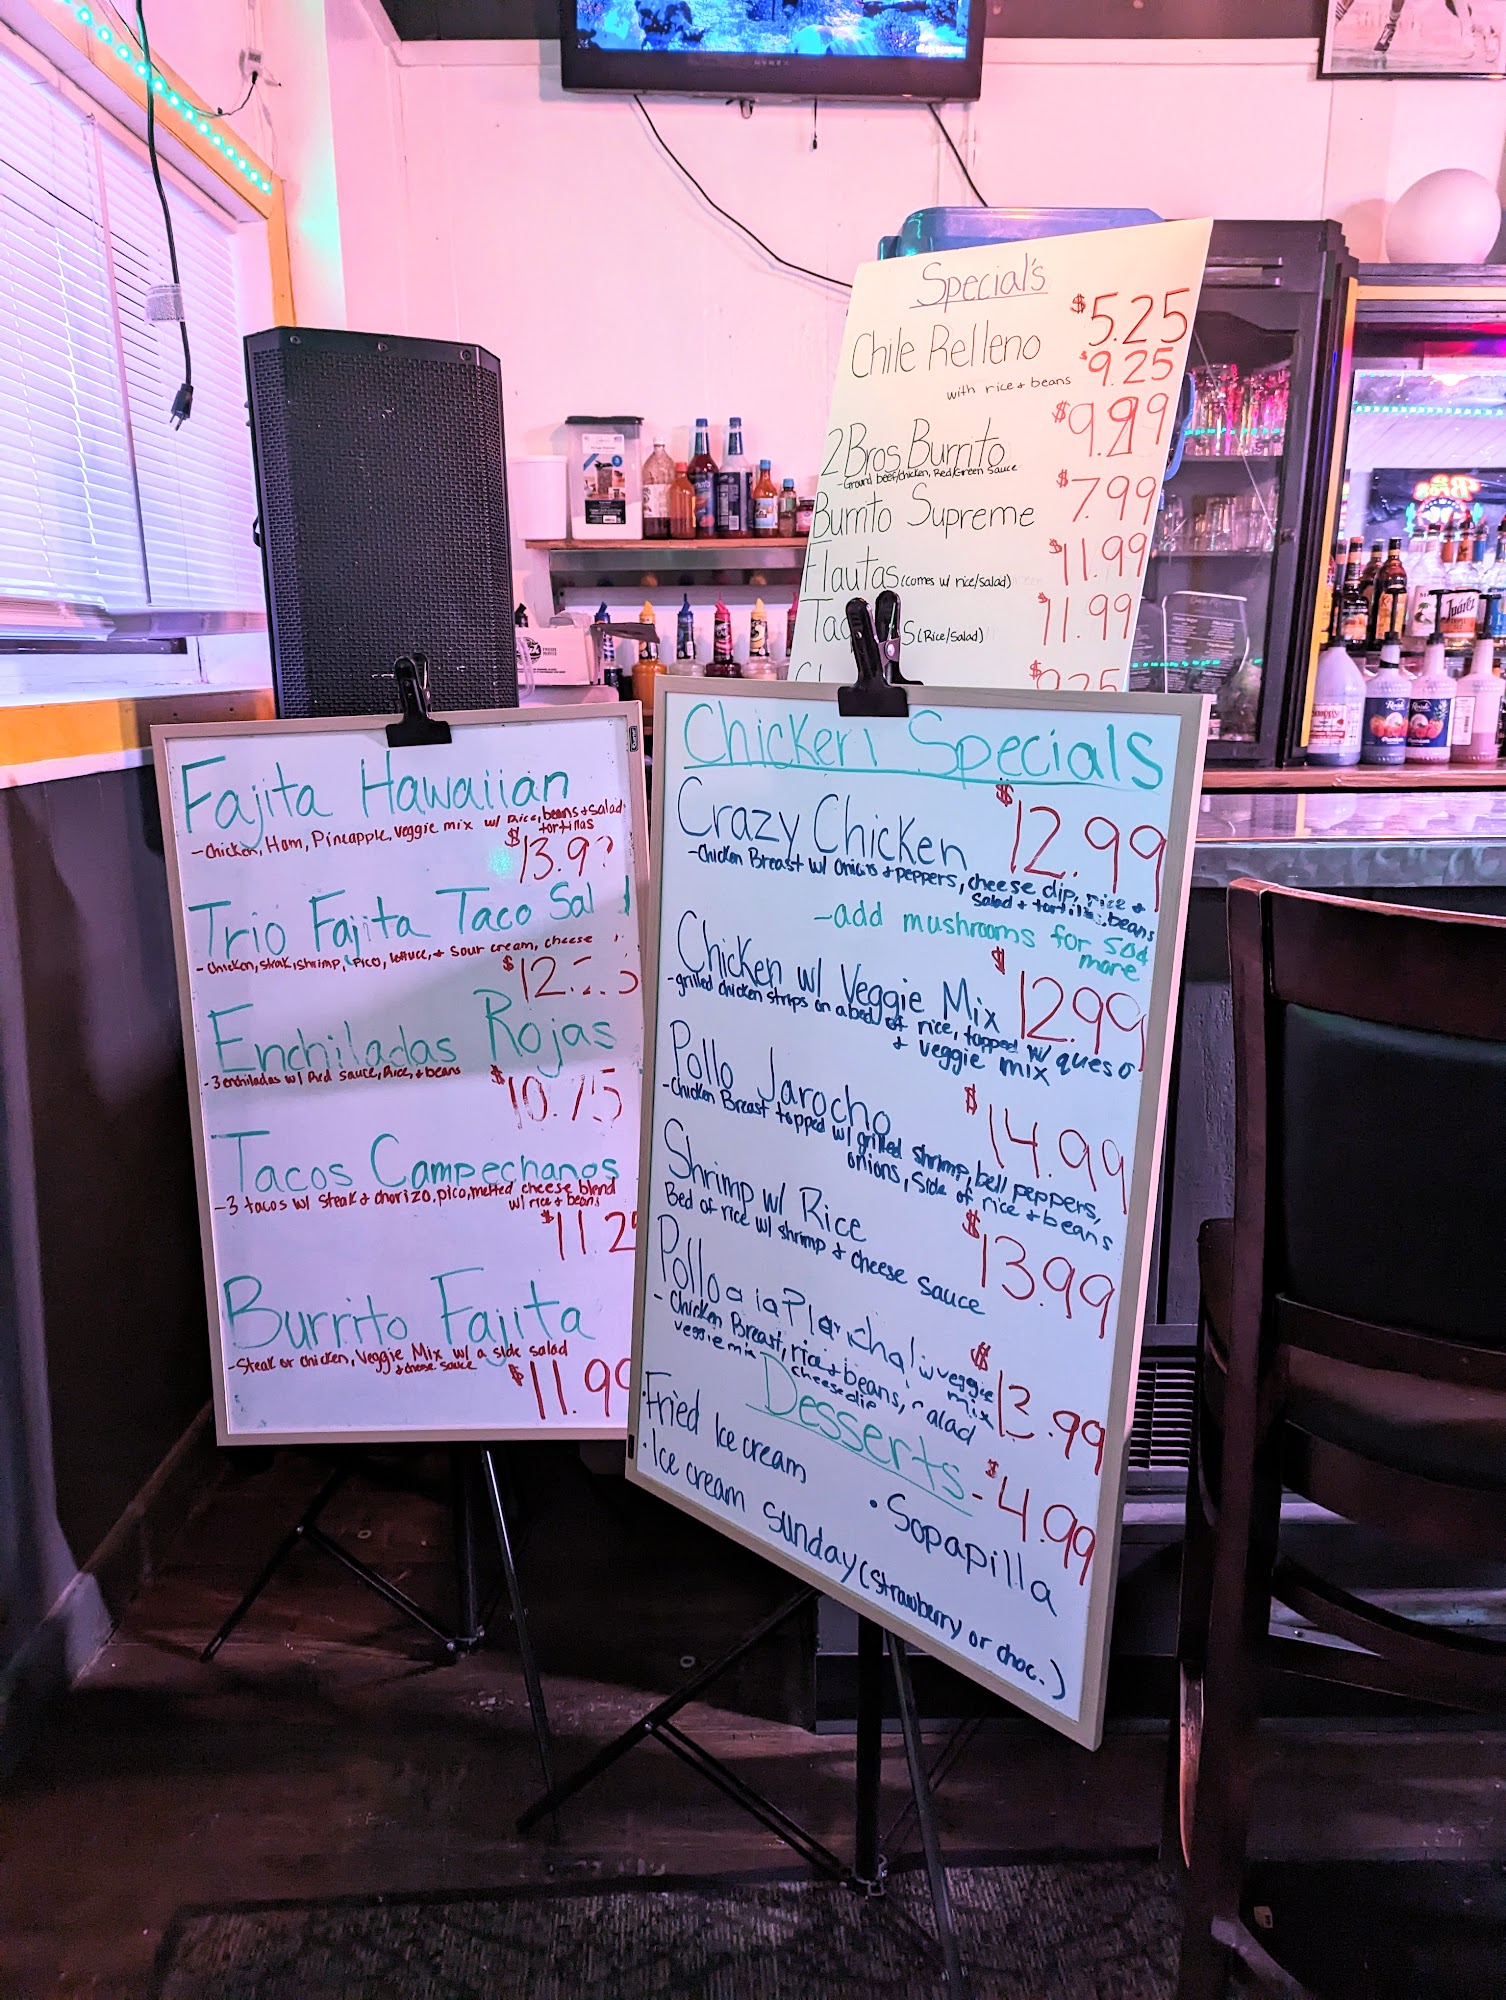 Special's
Chile Relleno $5.25
with rice & beans $9.25
2 Bros Burrito $9.99
-Ground beef/chicken, Red/Green Sauce
Burrito Supreme $7.99
Flautas (comes w/ rice/salad) $11.99
(Rice/Salad) $11.99
$9.25
Fajita Hawaiian
-Chicken, Ham, Pineapple, veggie mix w/ Rice, beans & salad
tortillas
$13.9
Trio Fajita Taco Sal
-Chicken, steak, shrimp, Pico, lettuce, & sour cream, cheese
$12.
Enchiladas Rojas
-3 enchiladas w/ Red Sauce, Rice, & beans
$10.75
Tacos Campechanos
-3 tacos w/ steak & chorizo, pico, melted cheese blend
w/ rice & beans
$11.2
Burrito Fajita
-Steak or chicken, Veggie Mix w/ a side salad
& cheese sauce
$11.99
Chicken Specials
Crazy Chicken $12.99
-Chicken Breast w/ onions & peppers, cheese dip, rice &
salad & tortillas, beans
-add mushrooms for 50¢
more
Chicken w/ Veggie Mix $12.99
-grilled chicken strips on a bed of rice, topped w/ queso
& veggie mix
Pollo Jarocho $14.99
-Chicken Breast topped w/ grilled shrimp, bell peppers,
onions, side of rice & beans
Shrimp w/ Rice $13.99
Bed of rice w/ shrimp & cheese sauce
Pollo a la Plancha w/ veggie
mix
- Chicken Breast, rice & beans, salad
veggie mix cheese dip
Desserts - $4.99
· Fried Ice cream
· Sopapilla
· Ice cream sunday (strawberry or choc.)